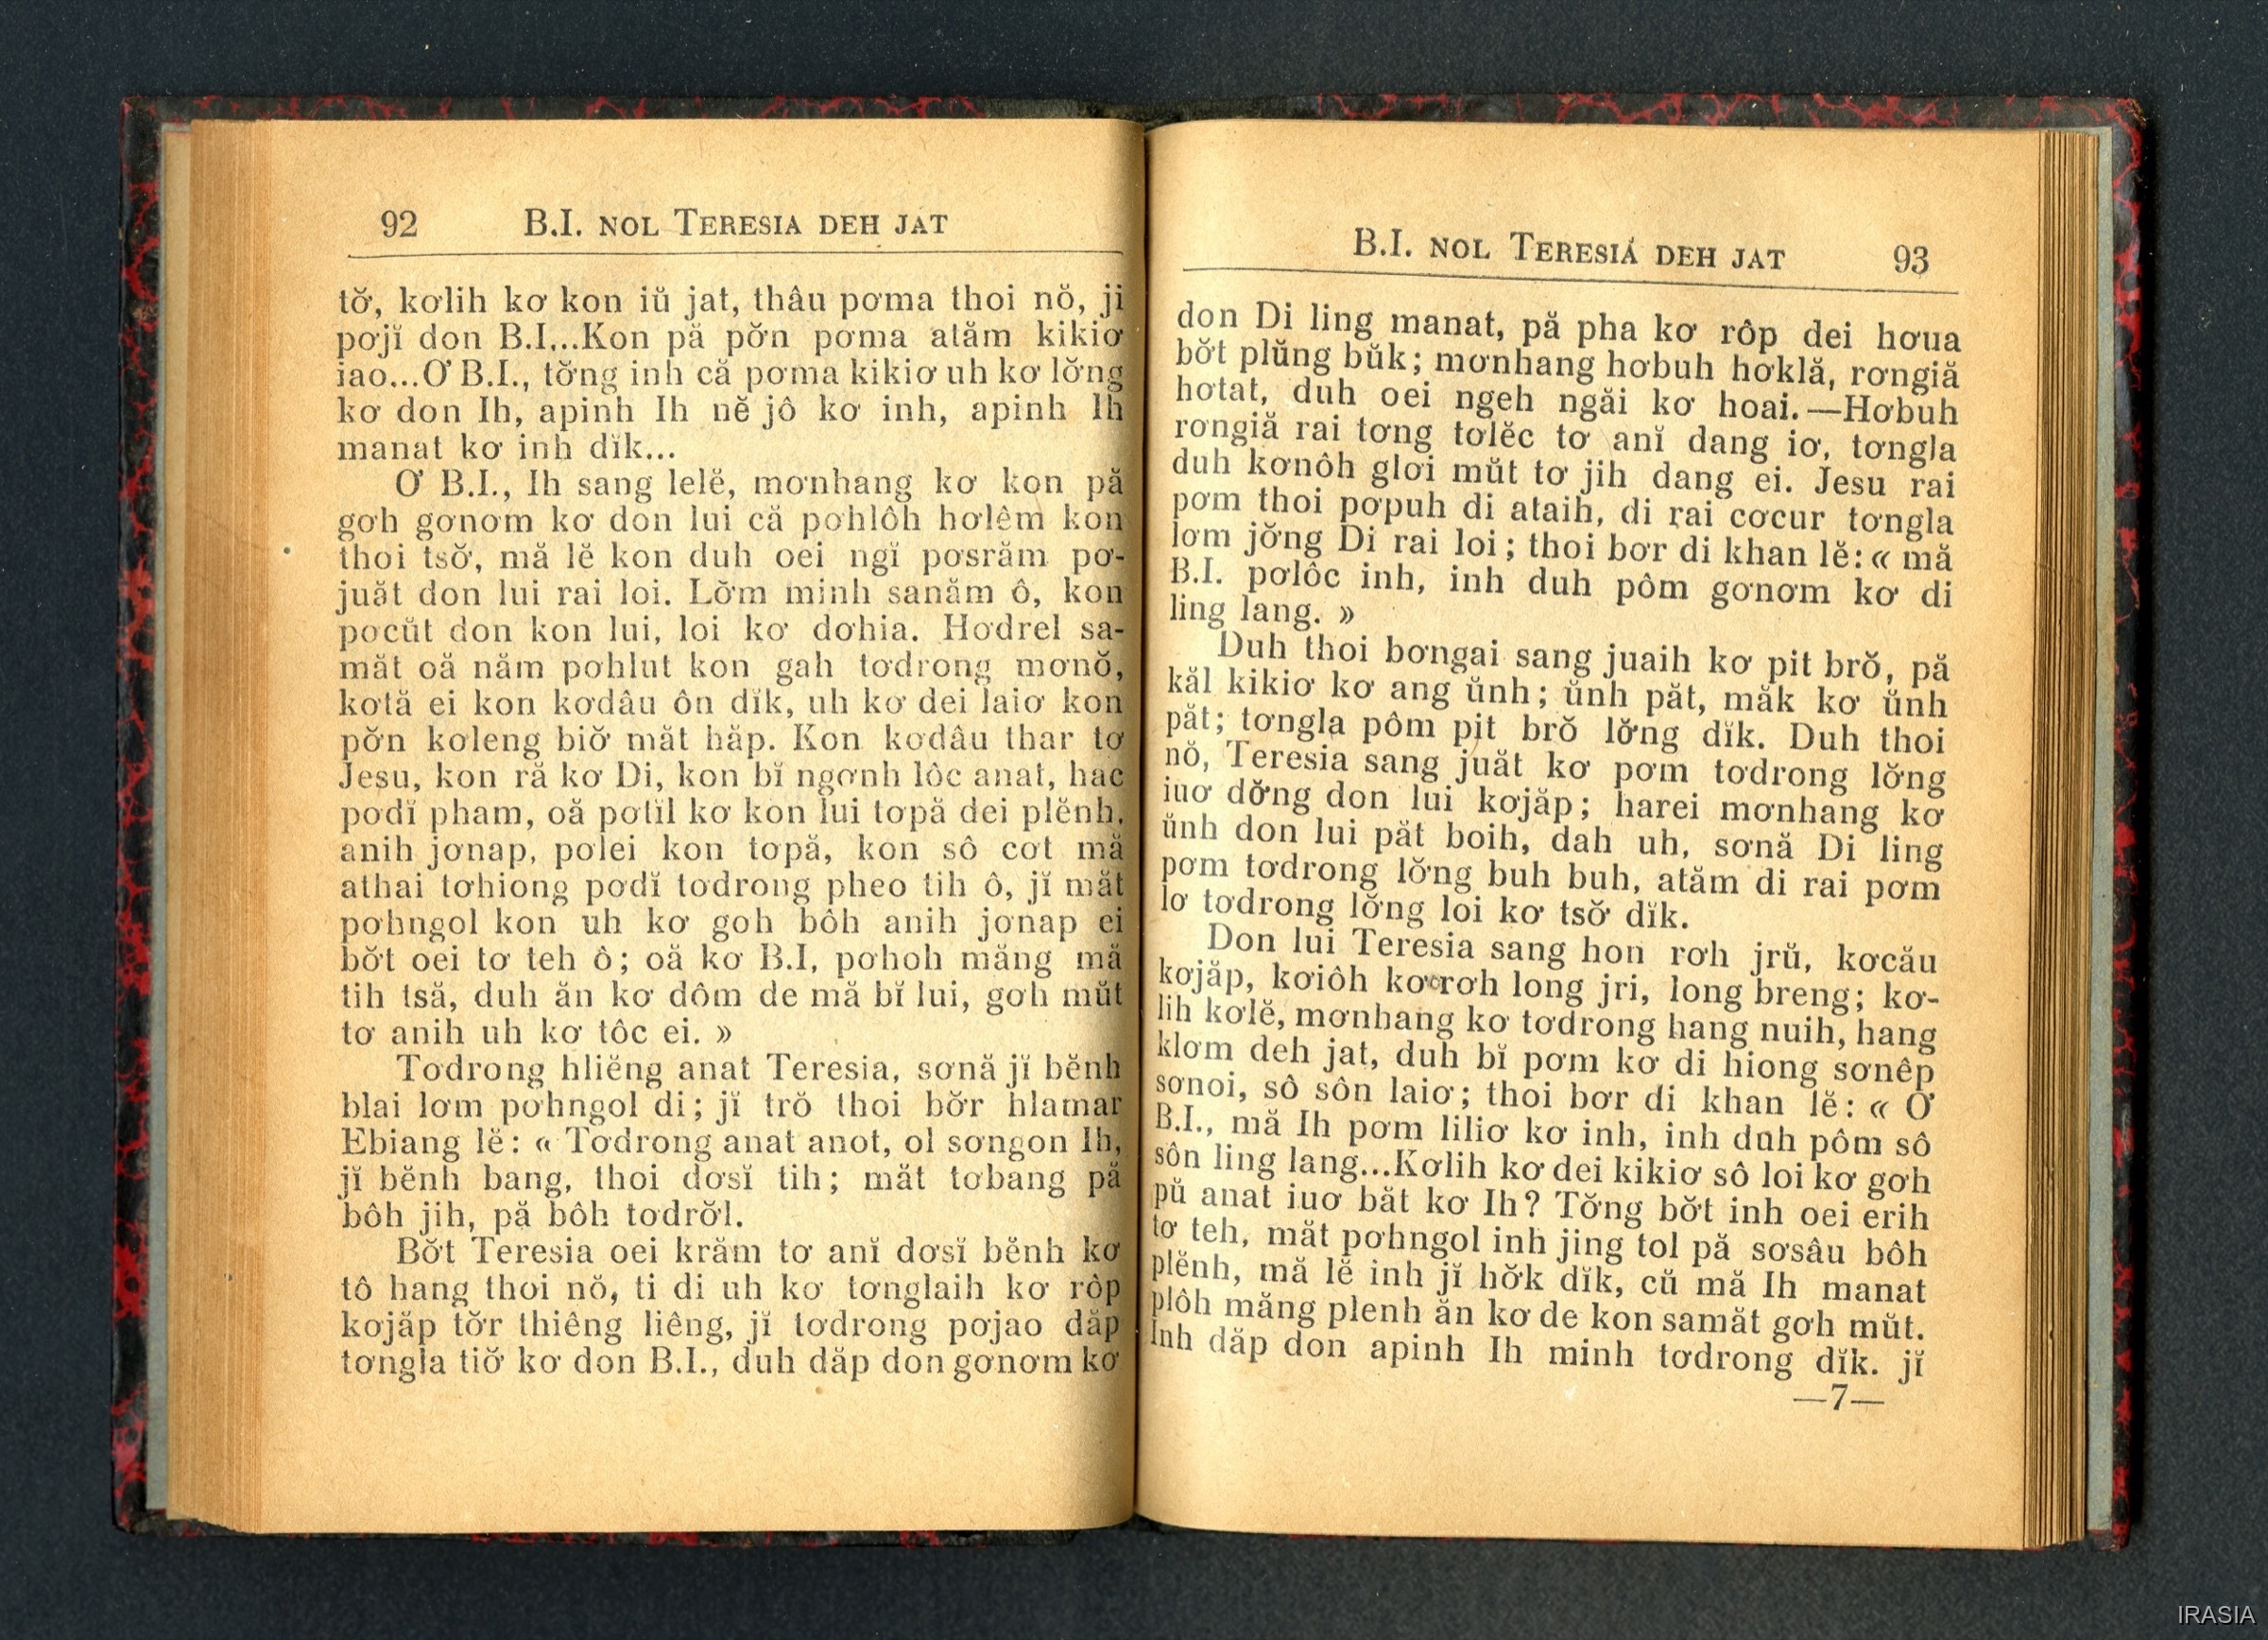 92 B.I. NOL TERESIA DEH JAT
tơ̆, kơlih kơ kon iŭ jat, thâu pơma thoi nŏ, ji
pơjĭ don B.I...Kon pă pơ̆n pơma atăm kikiơ
iao...Ơ B.I., tơ̆ng inh că pơma kikiơ uh kơ lơ̆ng
kơ don Ih, apinh Ih nĕ jô kơ inh, apinh Ih
manat kơ inh dĭk...
Ơ B.I., Ih sang lelĕ, mơnhang kơ kon pă
gơh gơnơm kơ don lui că pơhlôh hơlêm kon
thoi tsơ̆, mă lĕ kon duh oei ngĭ pơsrăm pơ-
juăt don lui rai loi. Lơ̆m minh sanăm ô, kon
pơcŭt don kon lui, loi kơ dơhia. Hơdrel sa-
măt oă năm pơhlut kon gah tơdrong mơnŏ,
kơtă ei kon kơdâu ôn dĭk, uh kơ dei laiơ kon
pơ̆n kơleng biơ̆ măt hăp. Kon kơdâu thar tơ
Jesu, kon ră kơ Di, kon bĭ ngơnh lôc anat, hac
pơdĭ pham, oă pơtĭl kơ kon lui tơpă dei plĕnh,
anih jơnap, pơlei kon tơpă, kon sô cơt mă
athai tơhiong pơdĭ tơdrong pheo tih ô, jĭ măt
pơhngol kon uh kơ goh bôh anih jơnap ei
bơ̆t oei tơ teh ô; oă kơ B.I, pơhoh măng mă
tih tsă, duh ăn kơ dôm de mă bĭ lui, gơh mŭt
tơ anih uh kơ tôc ei. »
Tơdrong hliĕng anat Teresia, sơnă jĭ bĕnh
blai lơm pơhngol di; jĭ trŏ thoi bơ̆r hlamar
Ebiang lĕ: « Tơdrong anat anot, ol sơngon Ih,
jĭ bĕnh bang, thoi dơsĭ tih; măt tơbang pă
bôh jih, pă bôh tơdrơ̆l.
Bơ̆t Teresia oei krăm tơ anĭ dơsĭ bĕnh kơ
tô hang thoi nŏ, ti di uh kơ tơnglaih kơ rôp
kơjăp tơ̆r thiêng liêng, jĭ tơdrong pơjao dăp
tơngla tiơ̆ kơ don B.I., duh dăp don gơnơm kơ
B.I. NOL TERESIA DEH JAT 93
don Di ling manat, pă pha kơ rôp dei hơua
bơ̆t plŭng bŭk; mơnhang hơbuh hơklă, rơngiă
hơtat, duh oei ngeh ngăi kơ hoai.—Hơbuh
rơngiă rai tơng tơlĕc tơ anĭ dang iơ, tơngla
duh kơnôh glơi mŭt tơ jih dang ei. Jesu rai
pơm thoi pơpuh di ataih, di rai cơcur tơngla
lơm jơ̆ng Di rai loi; thoi bơr di khan lĕ: « mă
B.I. pơlôc inh, inh duh pôm gơnơm kơ di
ling lang. »
Duh thoi bơngai sang juaih kơ pit brŏ, pă
kăl kikiơ kơ ang ŭnh; ŭnh păt, măk kơ ŭnh
păt; tơngla pôm pit brŏ lơ̆ng dĭk. Duh thoi
nŏ, Teresia sang juăt kơ pơm tơdrong lơ̆ng
iuơ dơ̆ng don lui kơjăp; harei mơnhang kơ
ŭnh don lui păt boih, dah uh, sơnă Di ling
pơm tơdrong lơ̆ng buh buh, atăm di rai pơm
lơ tơdrong lơ̆ng loi kơ tsơ̆ dĭk.
Don lui Teresia sang hon rơh jrŭ, kơcău
kơjăp, kơiôh kơ rơh long jri, long breng; kơ-
lih kơlĕ, mơnhang kơ tơdrong hang nuih, hang
klơm deh jat, duh bĭ pơm kơ di hiong sơnêp
sơnoi, sô sôn laiơ; thoi bơr di khan lĕ: « Ơ
B.I., mă Ih pơm liliơ kơ inh, inh duh pôm sô
sôn ling lang...Kơlih kơ dei kikiơ sô loi kơ gơh
pŭ anat iuơ băt kơ Ih? Tơ̆ng bơ̆t inh oei erih
tơ teh, măt pơhngol inh jing tol pă sơsâu bôh
plĕnh, mă lĕ inh jĭ hơ̆k dĭk, cŭ mă Ih manat
plôh măng plenh ăn kơ de kon samăt gơh mŭt.
Inh dăp don apinh Ih minh tơdrong dĭk. jĭ
—7—
IRASIA